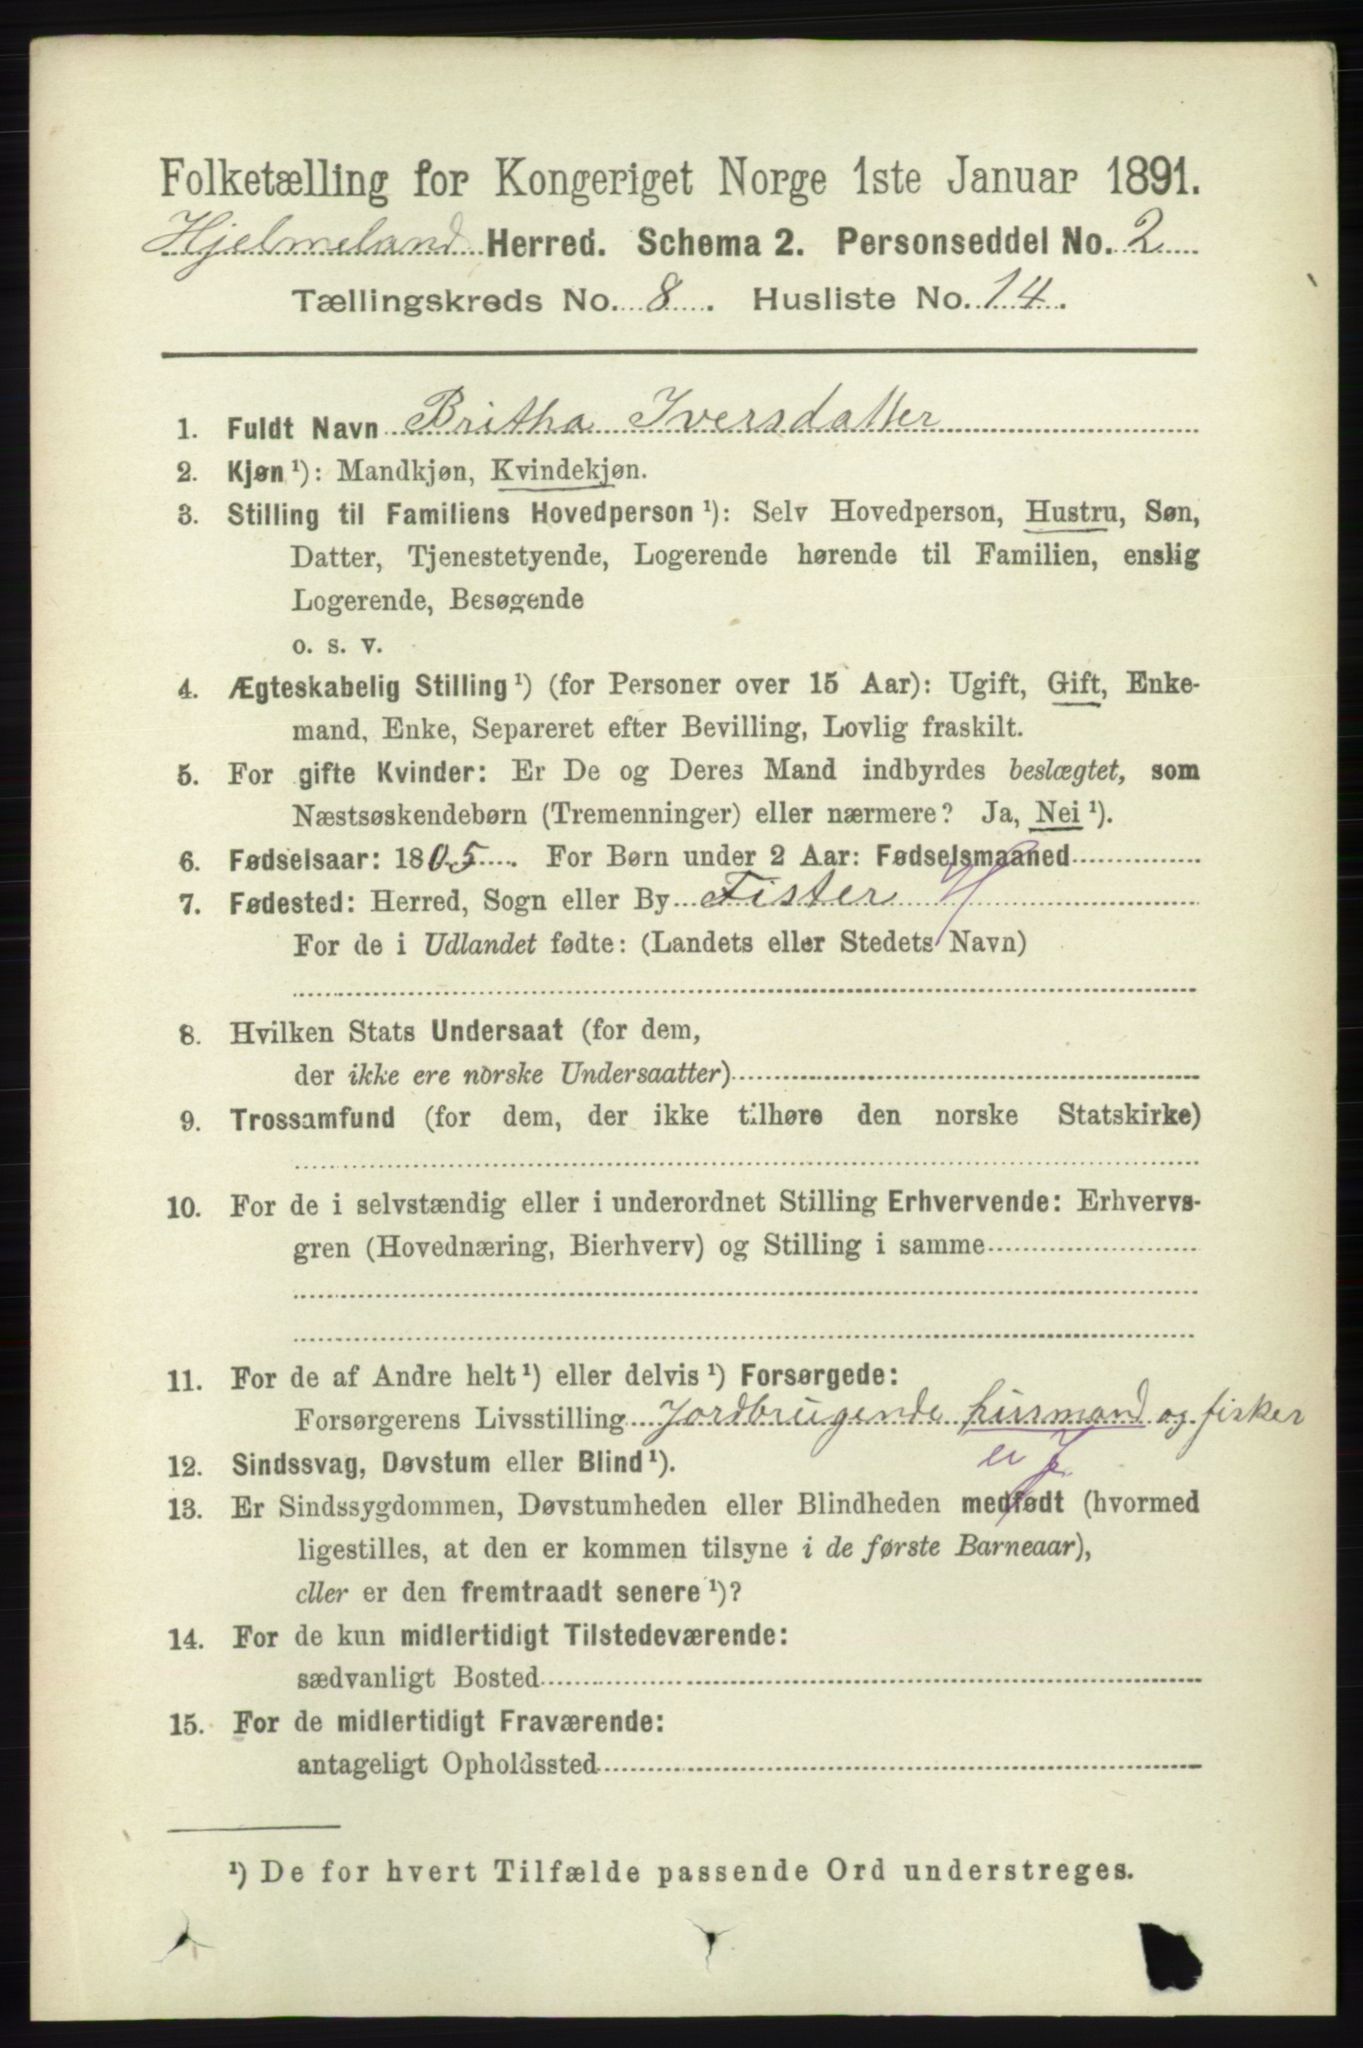 Folketælling for Kongeriget Norge 1ste Januar 1891.
Hjelmeland Herred. Schema 2. Personseddel No. 2
Tællingskreds No. 8. Husliste No. 14.
1. Fuldt Navn Britha Iversdatter
2. Kjøn ¹): Mandkjøn, Kvindekjøn.
3. Stilling til Familiens Hovedperson ¹): Selv Hovedperson, Hustru, Søn,
Datter, Tjenestetyende, Logerende hørende til Familien, enslig
Logerende, Besøgende
o. s. v.
4. Ægteskabelig Stilling ¹) (for Personer over 15 Aar): Ugift, Gift, Enke-
mand, Enke, Separeret efter Bevilling, Lovlig fraskilt.
5. For gifte Kvinder: Er De og Deres Mand indbyrdes beslægtet, som
Næstsøskendebørn (Tremenninger) eller nærmere? Ja, Nei ¹).
6. Fødselsaar: 1805. For Børn under 2 Aar: Fødselsmaaned
7. Fødested: Herred, Sogn eller By Fister H
For de i Udlandet fødte: (Landets eller Stedets Navn)
8. Hvilken Stats Undersaat (for dem,
der ikke ere norske Undersaatter)
9. Trossamfund (for dem, der ikke tilhøre den norske Statskirke)
10. For de i selvstændig eller i underordnet Stilling Erhvervende: Erhvervs-
gren (Hovednæring, Bierhverv) og Stilling i samme
11. For de af Andre helt ¹) eller delvis ¹) Forsørgede:
Forsørgerens Livsstilling Jordbrugende husmand og fisker
12. Sindssvag, Døvstum eller Blind ¹).
13. Er Sindssygdommen, Døvstumheden eller Blindheden medfødt (hvormed
ligestilles, at den er kommen tilsyne i de første Barneaar),
eller er den fremtraadt senere ¹)?
14. For de kun midlertidigt Tilstedeværende:
sædvanligt Bosted
15. For de midlertidigt Fraværende:
antageligt Opholdssted
¹) De for hvert Tilfælde passende Ord understreges.